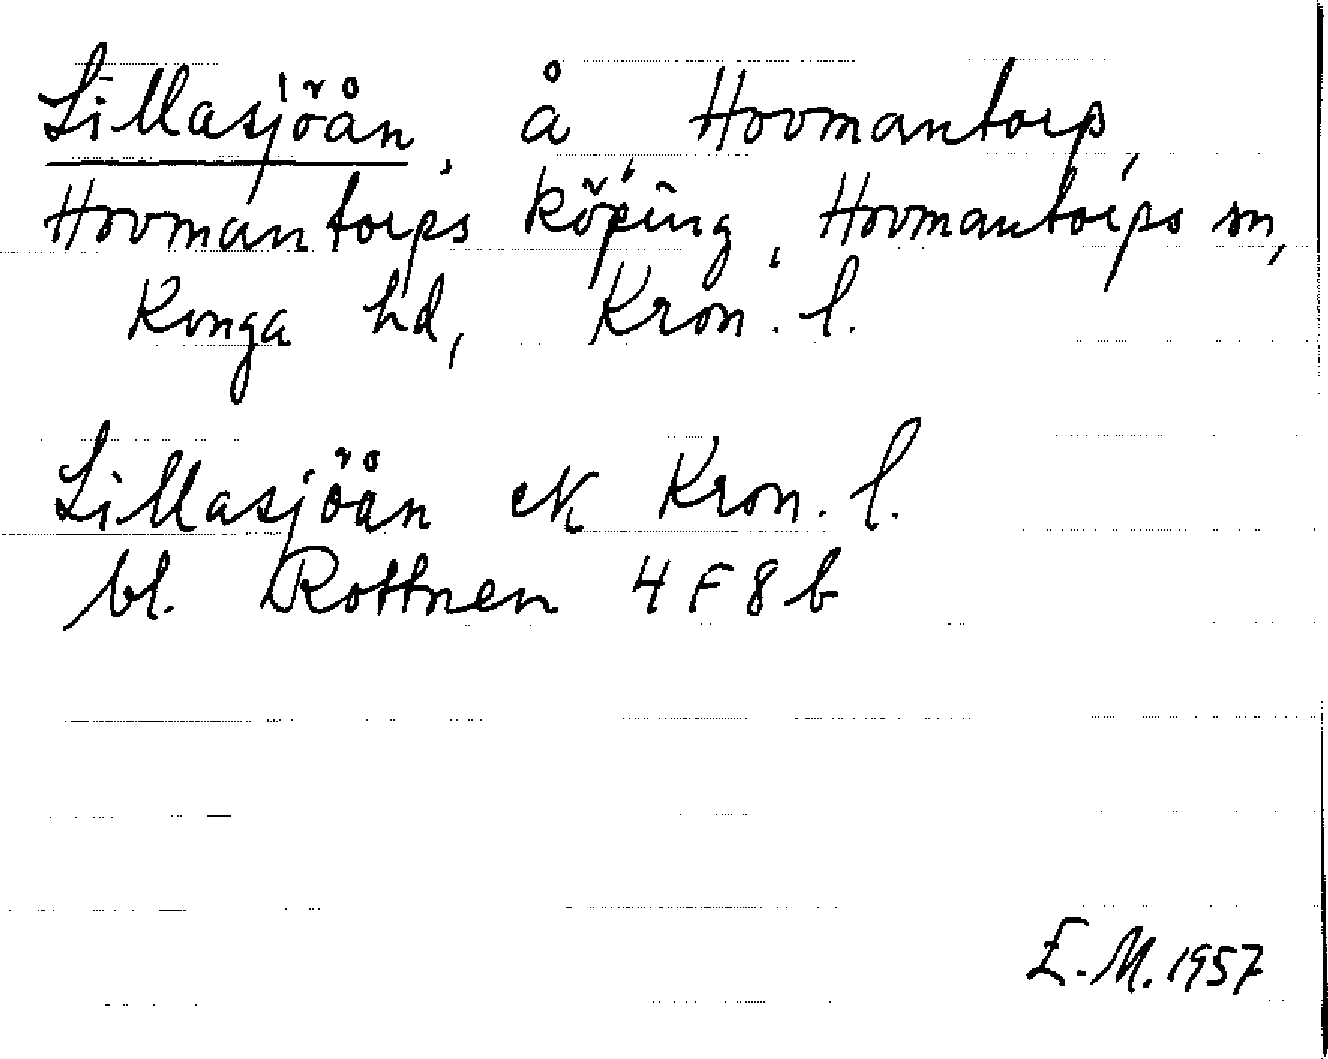 Lillasjöån, å, Hovmantorp,
Hovmantorps köping, Hovmantorps sn,
Konga hd, Kron. l.
Lillasjöån ek Kron. l.
bl. Rottnen 4 F 8 b
E. M. 1957